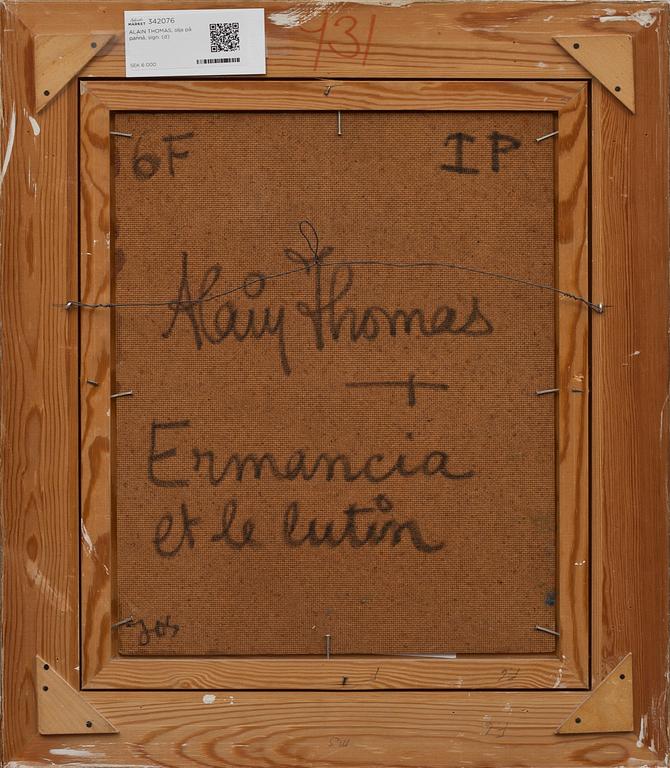 MARKET 342076
ALAIN THOMAS, olja på
pannå, sign. (d)
SEK 6 000
731
6F
IP
Alain Thomas
Ermancia
et le lutin